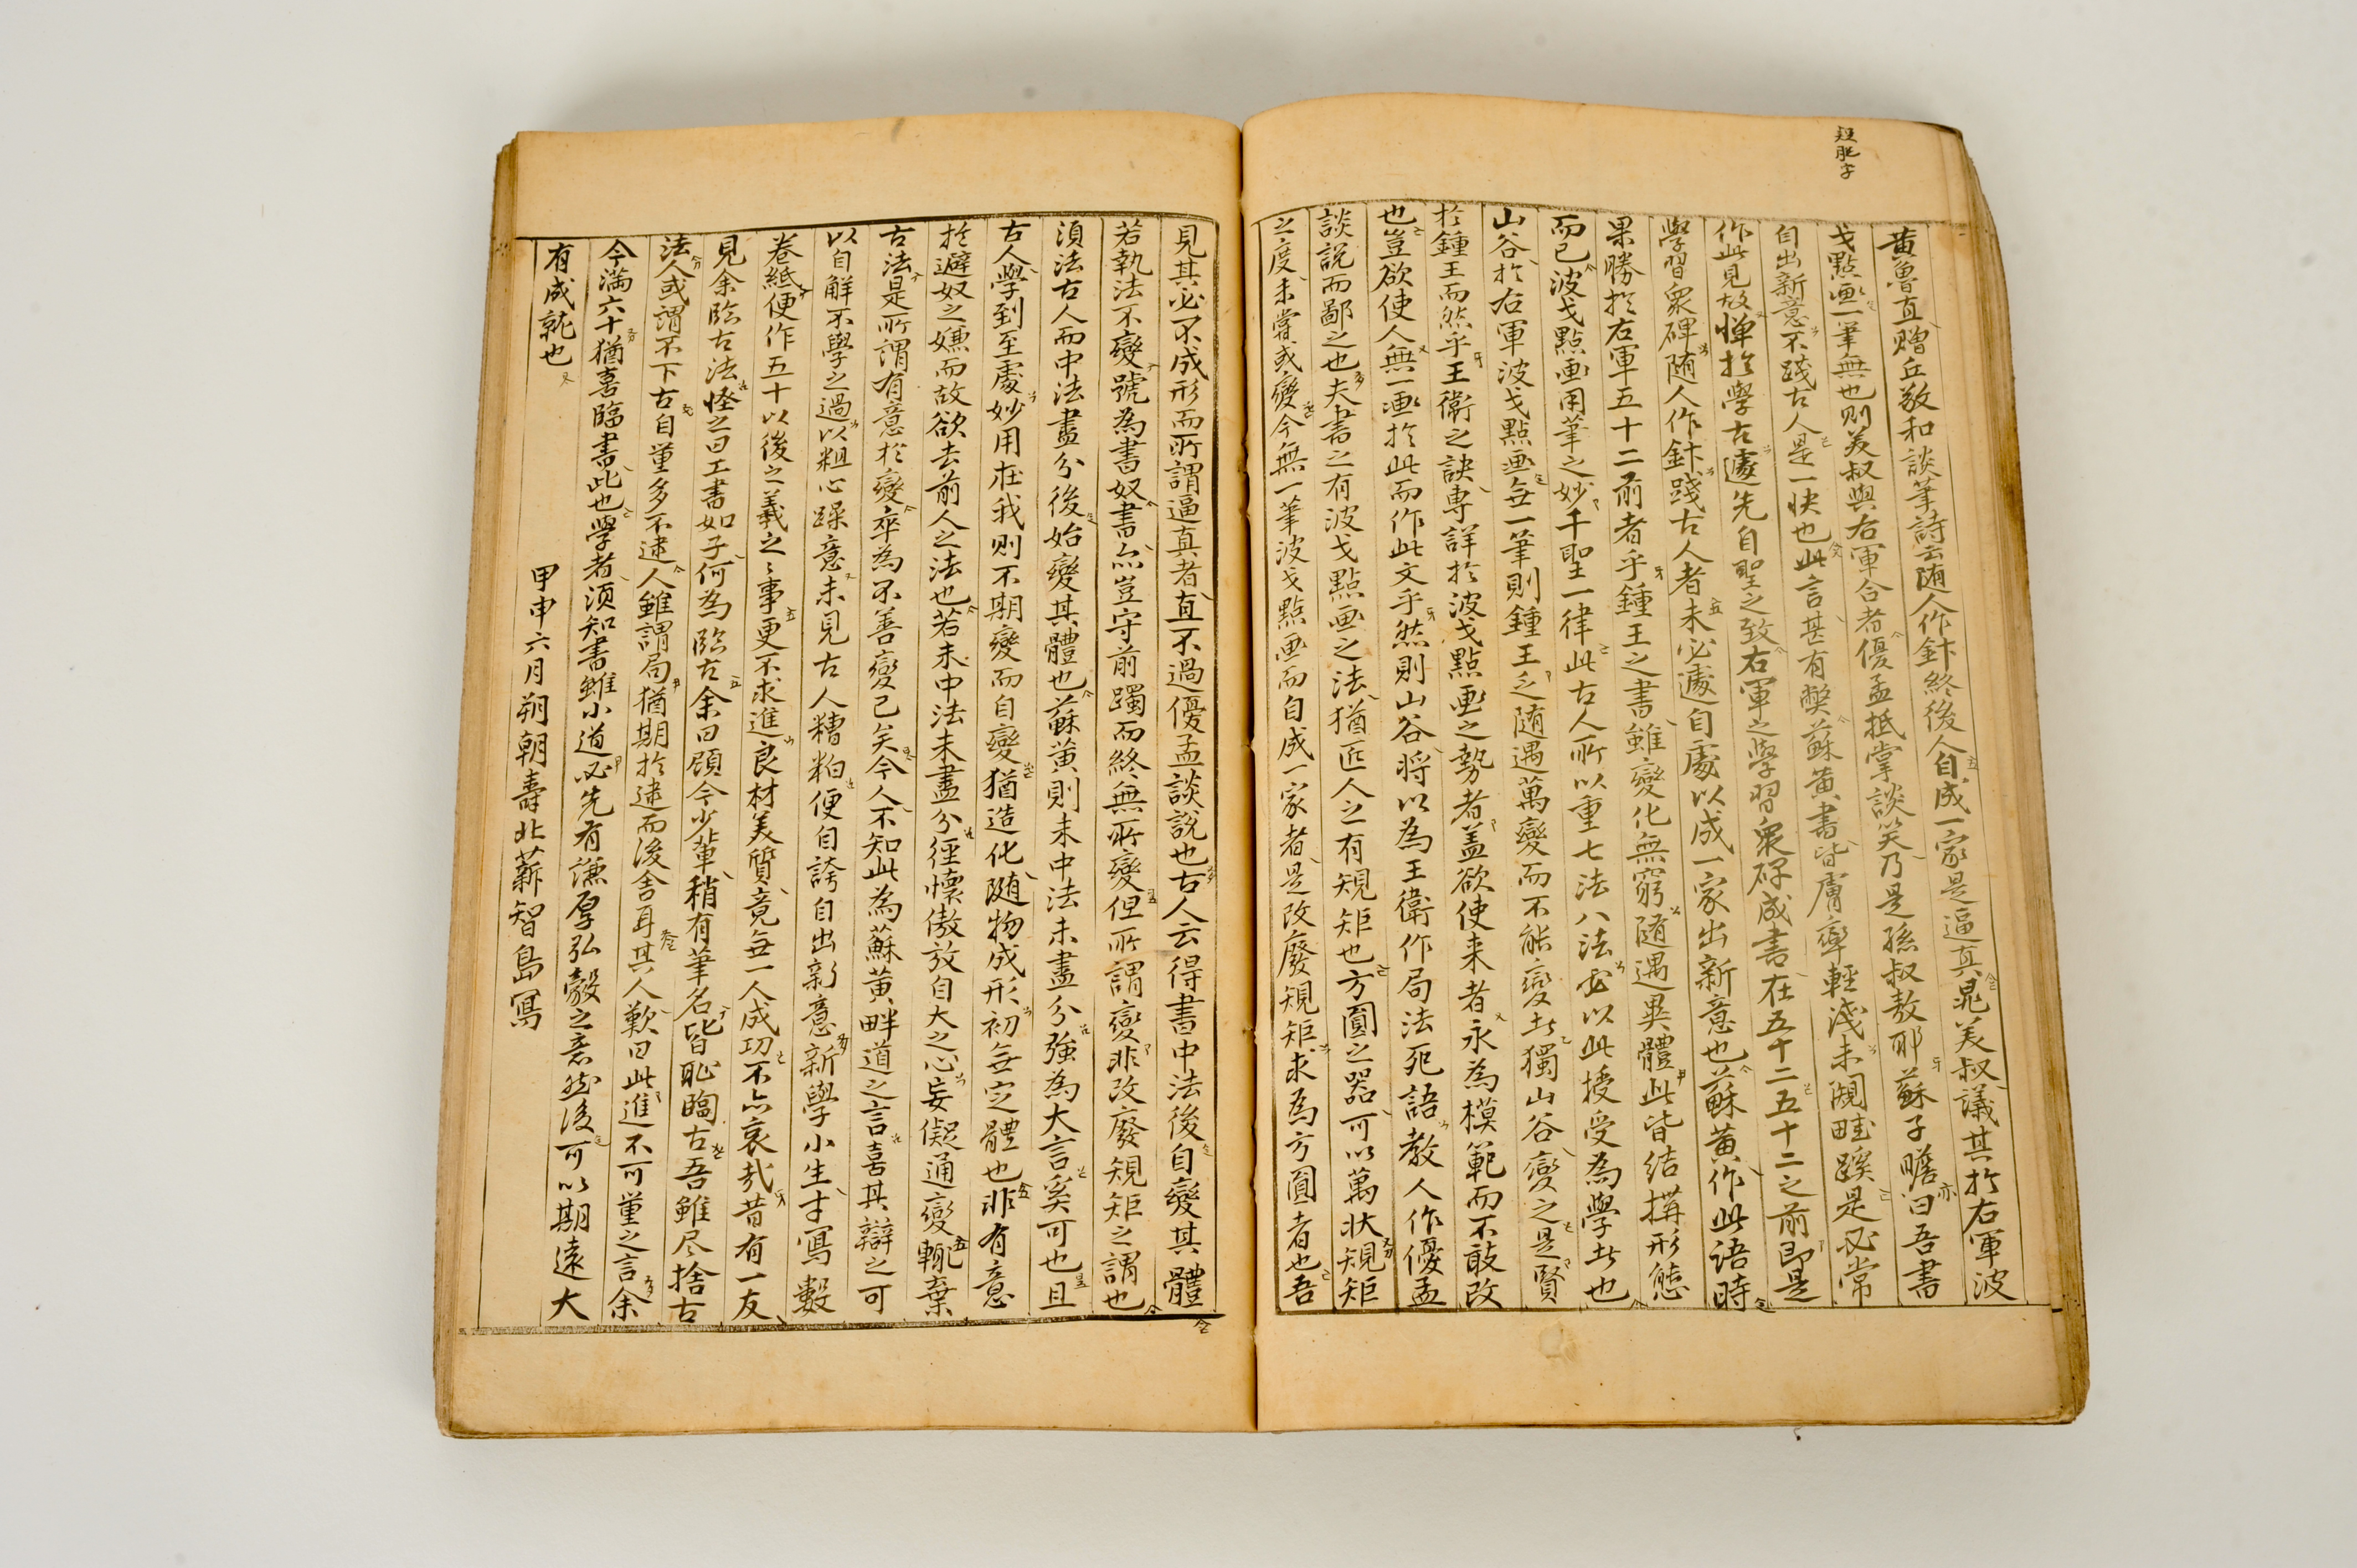 短肥字
黄魯直贈丘敬和談筆詩云随人作計終後人自成一家是逼真晁美叔議其於右軍波
戈點画一筆無也則美叔與右軍合者優孟抵掌談笑乃是孫叔敖耶蘇子瞻亦曰吾書
自出新意不踐古人是一快也此言甚有弊蘇黄書皆膚率輕淺未闖畦蹊是必常
作此見故憚於學古遽先自聖之致右軍之學習衆碑成書在五十二五十二之前即是
學習衆碑随人作計踐古人者未必遽自處以成一家出新意也蘇黄作此語時
果勝於右軍五十二前者乎鍾王之書雖變化無窮随遇異體此皆結搆形態
而已波戈點画用筆之妙千聖一律此古人所以重七法八法必以此授受為學者也
山谷於右軍波戈點画無一筆則鍾王之随遇萬變而不能變者獨山谷變之是賢
於鍾王而然乎王衛之訣專詳於波戈點画之勢者盖欲使来者永為模範而不敢改
也豈欲使人無一画於此而作此文乎然則山谷将以為王衛作局法死語教人作優孟
談說而鄙之也夫書之有波戈點画之法猶匠人之有規矩也方圓之器可以萬状規矩
之度未嘗或變今無一筆波戈點画而自成一家者是改廢規矩求為方圓者也吾
見其必不成形而所謂逼真者直不過優孟談說也古人云得書中法後自變其體
若執法不變號為書奴書亦豈守前躅而終無所變但所謂變非改廢規矩之謂也
須法古人而中法盡分後始變其體也蘇黄則未中法未盡分強為大言奚可也且
古人學到至處妙用在我則不期變而自變猶造化随物成形初無定體也非有意
於避奴之嫌而故欲去前人之法也若未中法未盡分徑懐傲放自大之心妄儗通變輒棄
古法是所謂有意於變卒為不善變已矣今人不知此為蘇黄畔道之言喜其辯之可
以自解不學之過以粗心躁意未見古人糟粕便自誇自出新意新學小生才寫數
卷紙便作五十以後之羲之之事更不求進良材美質竟無一人成功不亦哀哉昔有一友
見余臨古法怪之曰工書如子何為臨古余曰顧今少輩稍有筆名皆恥臨古吾雖尽捨古
法人或謂不下古自量多不逮人雖謂局猶期於逮而後舍耳其人歎曰此進不可量之言余
今満六十猶喜臨書此也學者須知書雖小道必先有謙厚弘毅之意然後可以期遠大
有成就也
甲申六月朔朝壽北薪智島寫